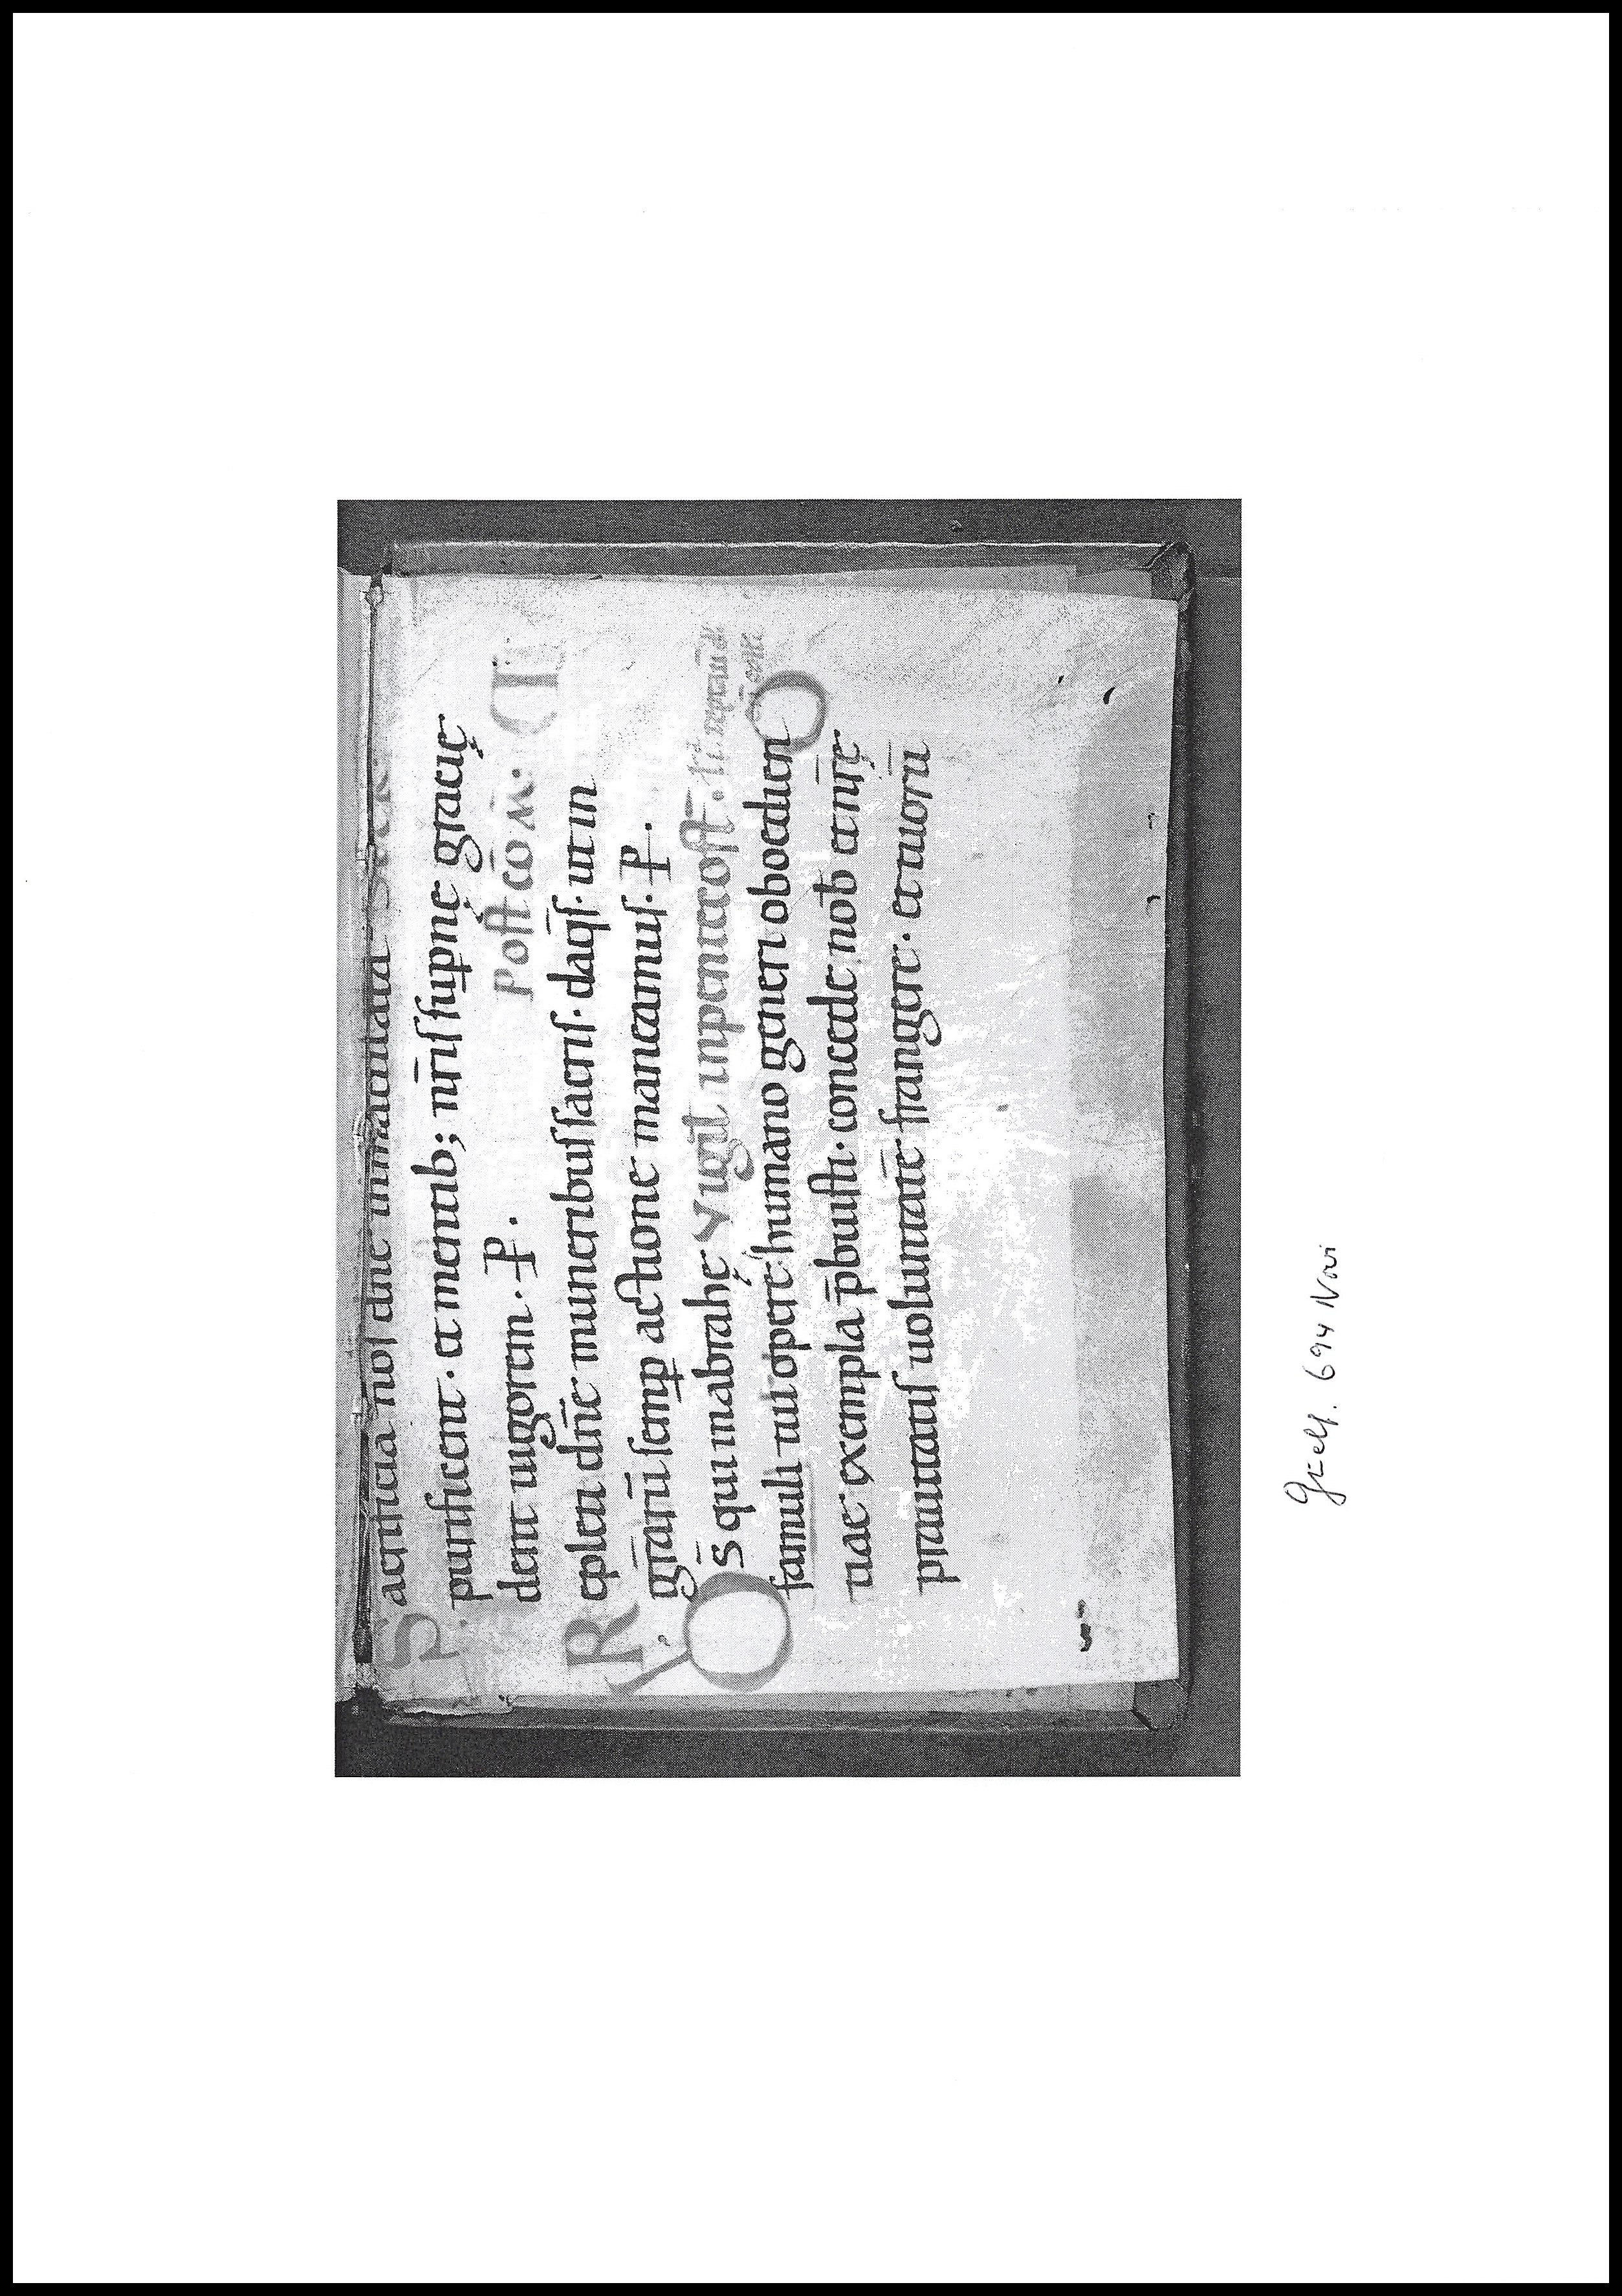 Sacrificia nos dne inmaculata
purificent · et mentib; nr̄is sup̱nę gracię
dent uigorem · P̵ . Post cōm̄.
Repleti dn̄e muneribus sacris · daq̄s · ut in
gr̄arū semp̱ actione maneamus · P̵ .
Ds̄ qui inabrahę vigit inpentecost̄ .
famuli tui opere humano generi obedien
tiae exempla p̄buisti · concede nob̄ et nr̄ę
prauitatis uoluntatē frangere · et tuorū
Guelf. 694 Novi